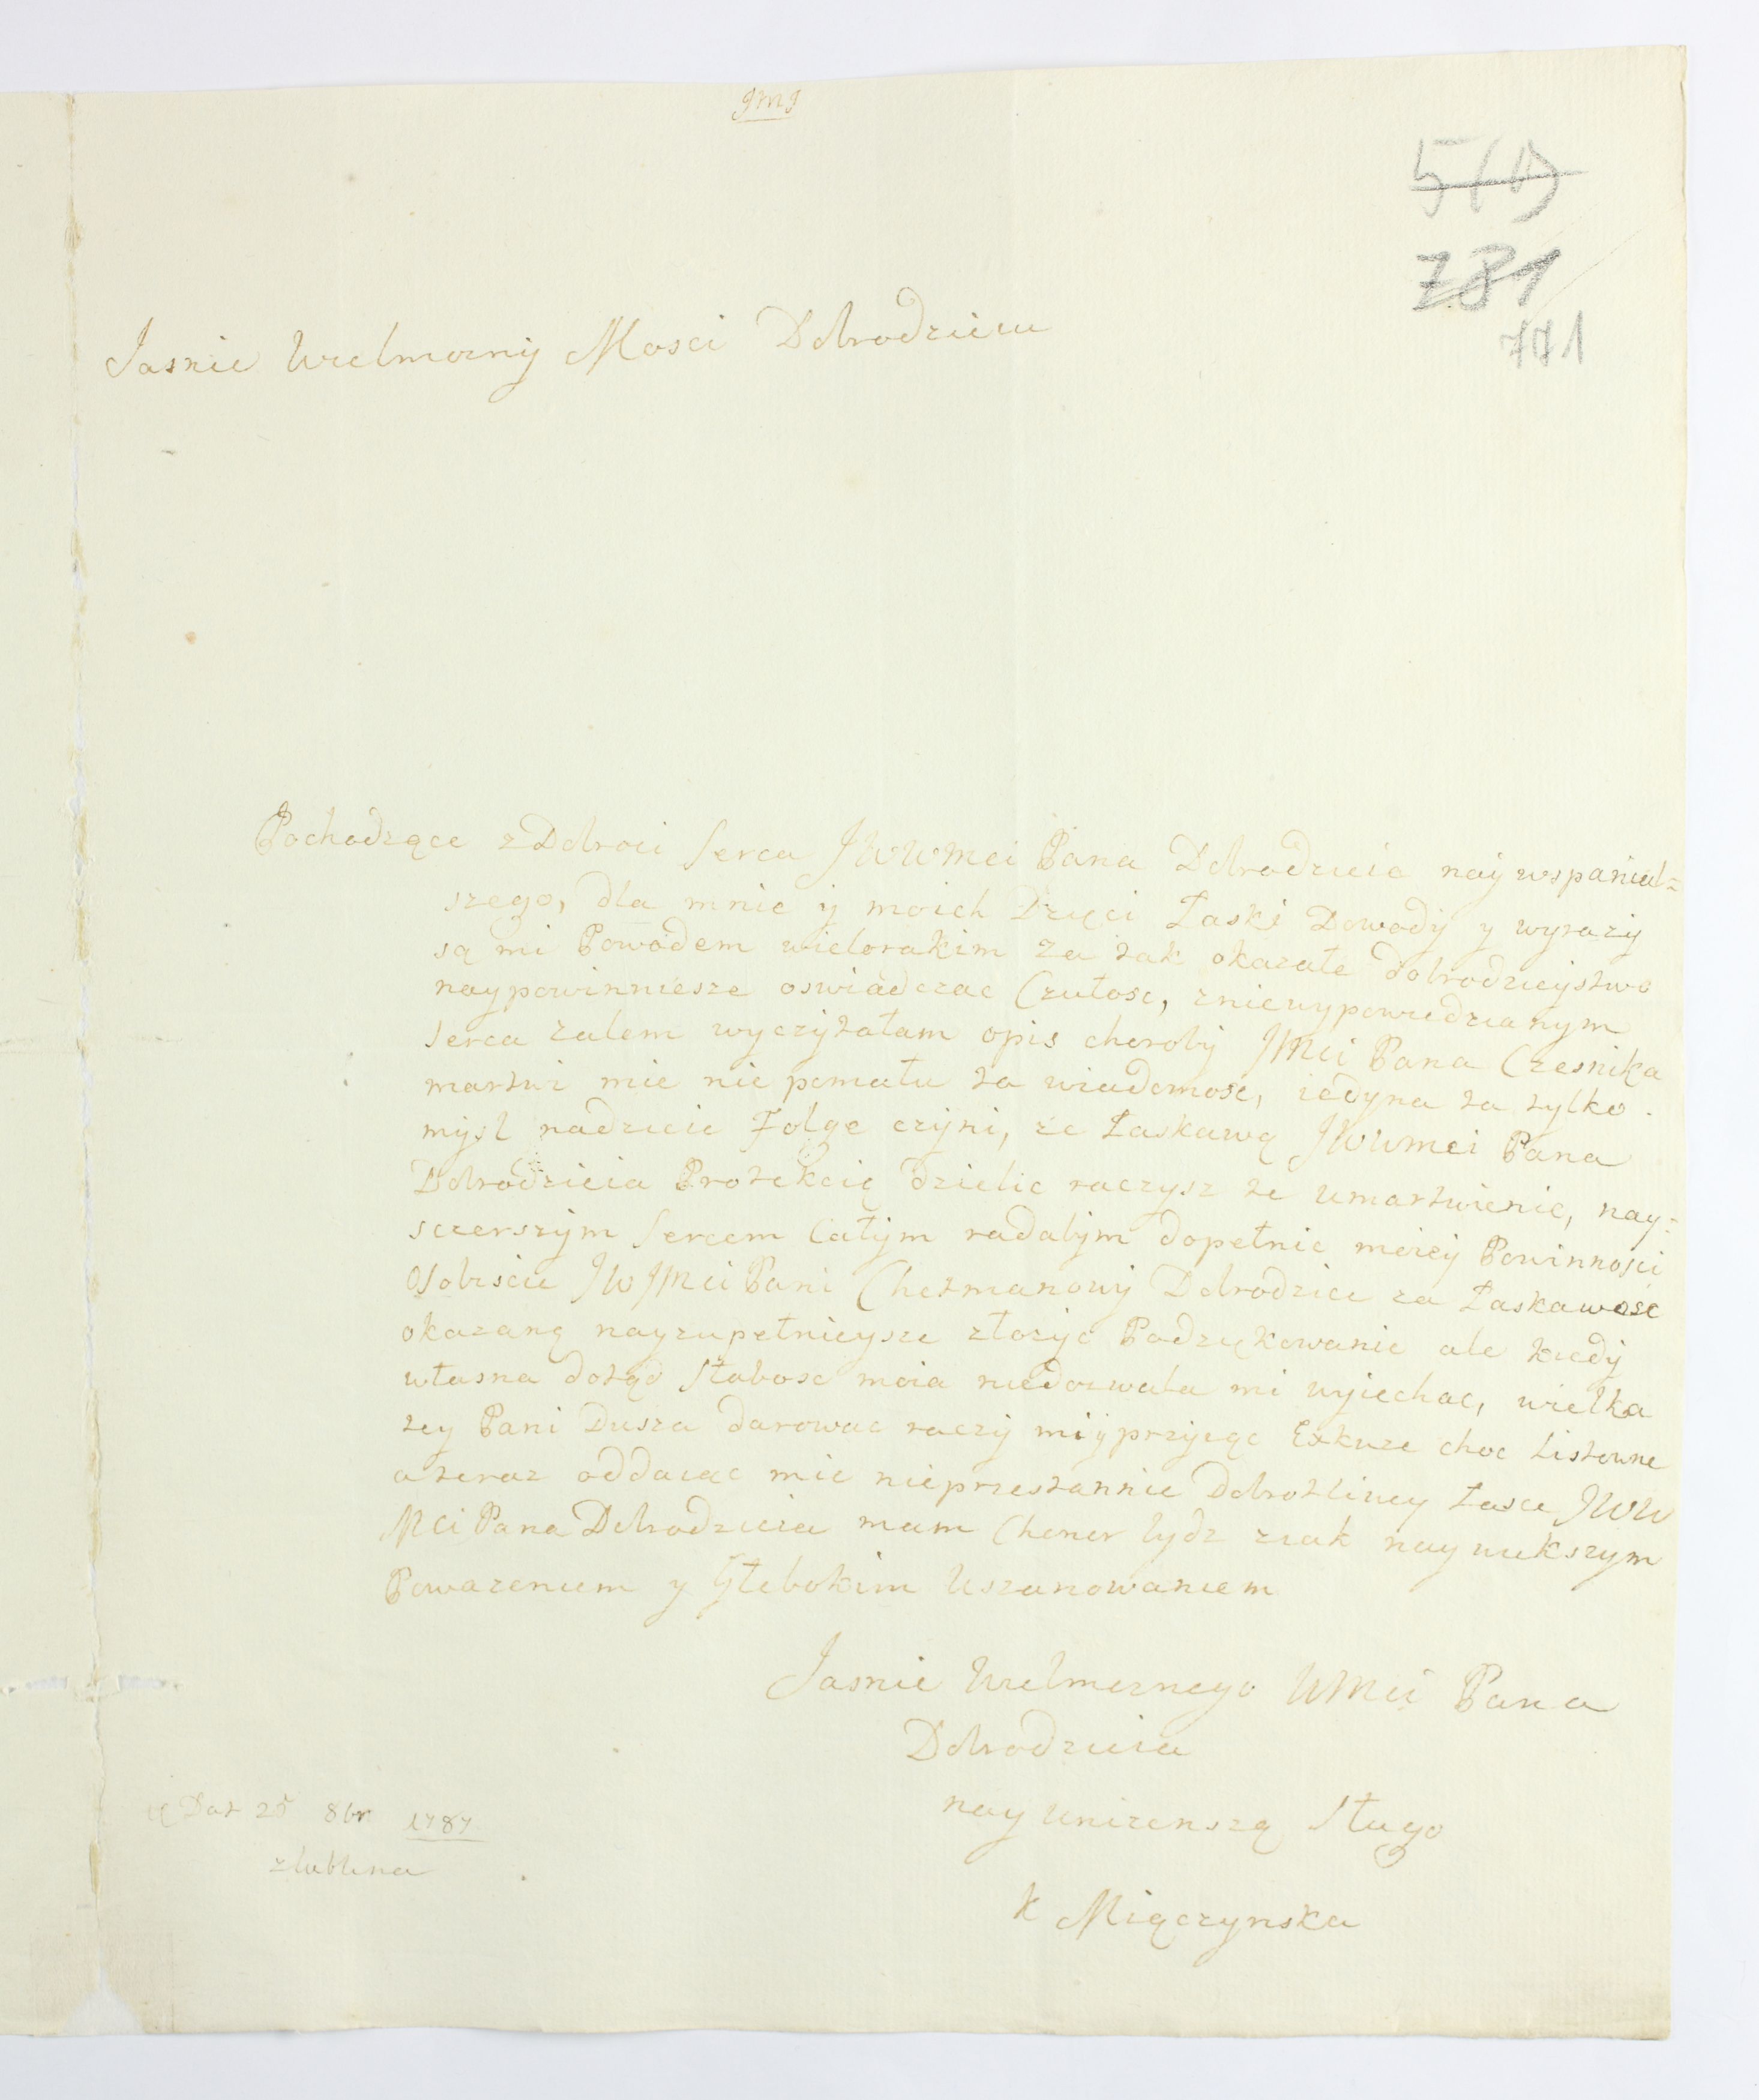 JMJ
5(1)
781
771
Jasnie Wielmozny Mosci Dobrodzieiu
Pochodzące z Dobroci Serca JWWMci Pana Dobrodzieia nay wspanial=
szego, dla mnie y moich Dzieci Łaski Dowody y wyrazy
są mi Powodem wielorakim za tak okazałe dobrodzieystwo
naypowinniesze oswiadczac Czułosc, zniewypowiedzianym
Serca zalem wyczytałam opis choroby JMci Pana Czesnika
martwi mie nie pomału ta wiadomosc, iedyna ta tylko
mysl nadzieie Folge czyni, że Łaskawą JWWMci Pana
Dobrodzieia Protekcią dzielic raczysz te umartwienie, nay=
sczerszym Sercem Całym radabym dopełnic moiey Powinnosci
Osobiscie JWJMci Pani Chetmanowy Dobrodzice za Łaskawosc
okazaną nayzupełnieysze złożyc Podziękowanie ale kiedy
własna dotąd Słabosc moia niedozwala mi wyiechac, wielka
tey Pani Dusza darowac raczy mi y przyiąc Exkuze choc Listowne
a teraz oddaiąc mie nieprzestannie Dobrotliwey Łasce JWW
MciPana Dobrodzieia mam Choner bydz ziak naywiekszym
Powazeniem y Głebokim Uszanowaniem
Jasnie Wielmoznego WMci Pana
Dobrodzieia
nay unizenszą Sługo
K Miączynska
Dat 25 8br 1787
z lublina